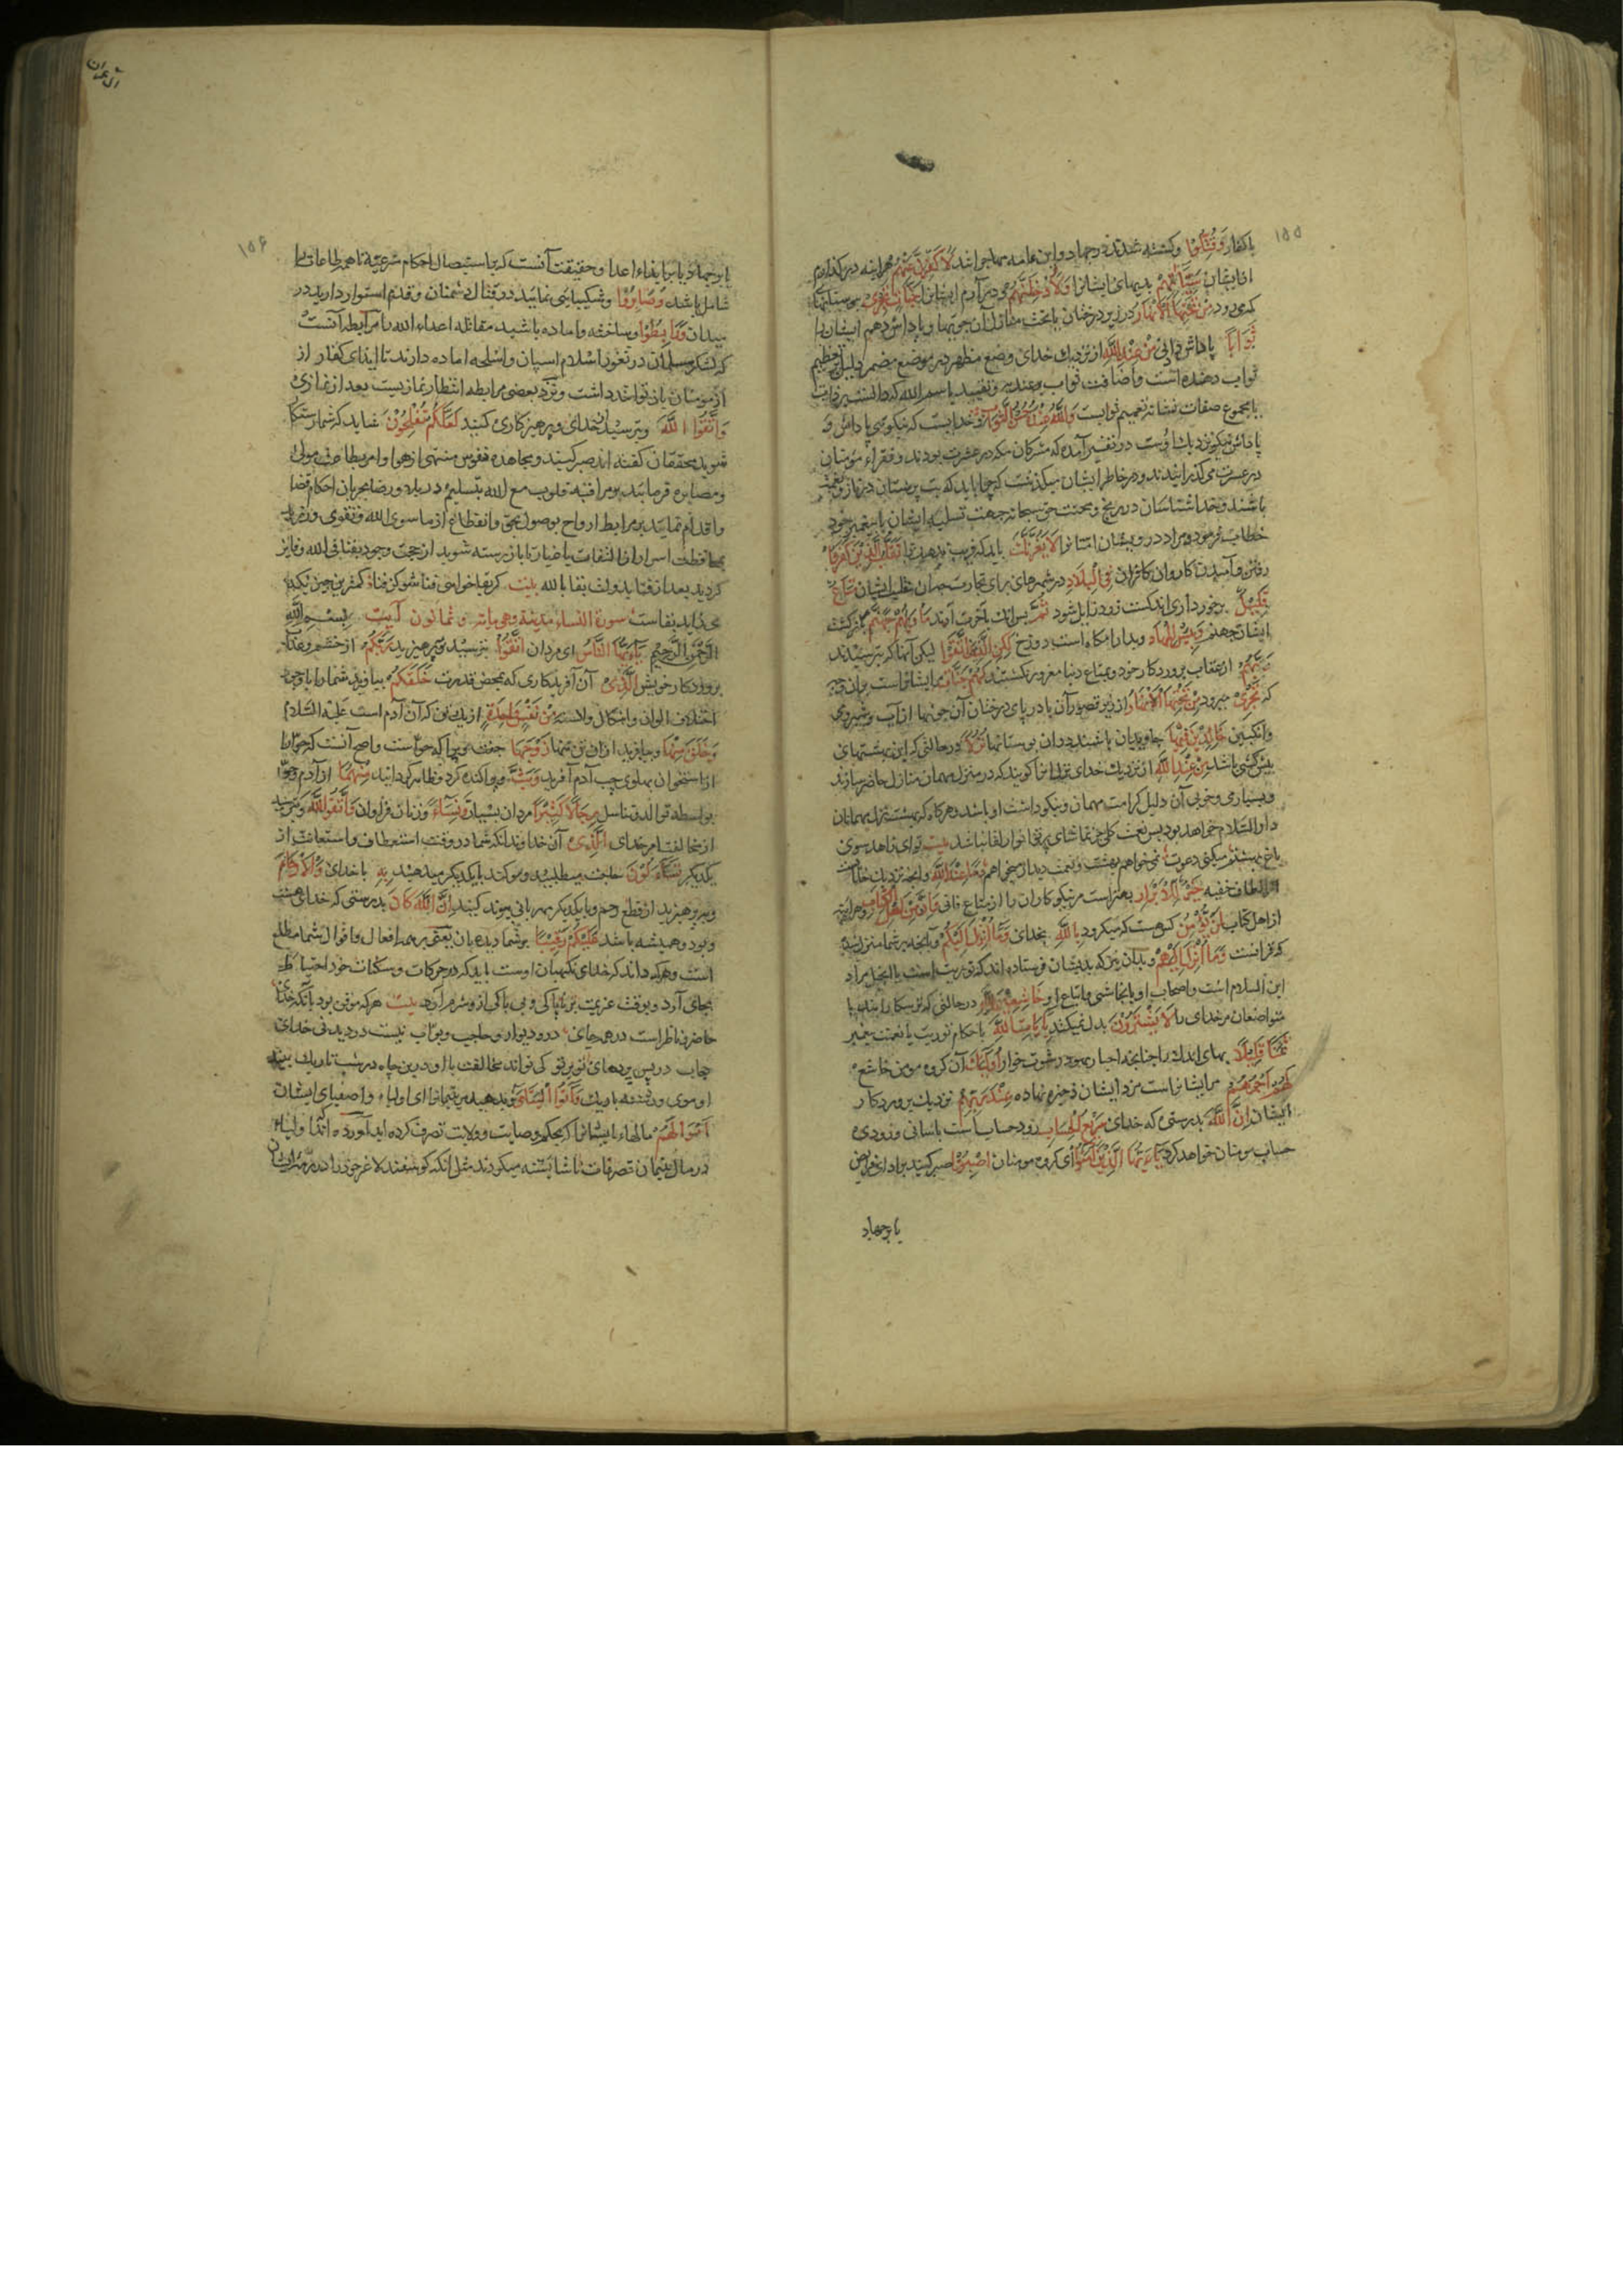 ۱۵۵
با کفار وَقُتِلُوا وکشته شدند در جهاد و این عامه مهاجرانند لَأُكَفِّرَنَّ عَنْهُمْ هراینه درکذارم
از ایشان سَيِّئَاتِهِمْ بدیهای ایشانرا وَلَأُدْخِلَنَّهُمْ و درآرم ایشانرا جَنَّاتٍ تَجْرِي ببوستانها
که می رود مِنْ تَحْتِهَا الْأَنْهَارُ در زیر درختان یا تحت منازل آن جویها و پاداش دهم ایشان را
ثَوَابًا پاداش دادنی مِنْ عِنْدِ اللَّهِ از نزدیک خدای وضع مظهر در موضع مضمر دلیل تعظیم
ثواب دهنده است واضافت ثواب وعندیه وتقیید باسم الله که
با مجموع صفات نشانه تعمیم ثوابست وَاللَّهُ عِنْدَهُ حُسْنُ الثَّوَابِ وخدایست که نیکویی پاداش و
پاداش نیکو نزدیک اوست در تفسیر آمده که مشرکان مکه در عشرت بودند وفقراء مؤمنان
در عسرت می کذرانیدند ودر خاطر ایشان میکذشت که چرا باید که بت پرستان در ناز ونعمت
باشند وخدا شناسان در رنج ومحنت حق سبحانه جهت تسلیه ایشان با پیغمبر خود
خطاب فرمود ومراد درویشان امتانرا لَا يَغُرَّنَّكَ باید که فریب ندهد ترا تَقَلُّبُ الَّذِينَ كَفَرُوا
رفتن وآمدن کاروان کافران فِي الْبِلَادِ در شهرهای برای تجارت جهان تقلب ایشان مَتَاعٌ
قَلِيلٌ برخورداری اندکست زود زایل شود ثُمَّ پس ازان بآخرت آیند مَأْوَاهُمْ جَهَنَّمُ بازکشت
ایشان جهنم وَبِئْسَ الْمِهَادُ وبد آرامکاه است دوزخ لَكِنِ الَّذِينَ اتَّقَوْا لیکن آنها که بترسیدند
رَبَّهُمْ از عقاب پروردکار خود وبمتاع دنیا مغرور نکشتند لَهُمْ جَنَّاتٌ مرایشانراست بوستانها
که تَجْرِي میرود مِنْ تَحْتِهَا الْأَنْهَارُ از زیر قصور آن یا در پای درختان آن جویها از آب وشیر ومی
وانکبین خَالِدِينَ فِيهَا جاویدان باشند دران بوستانها نُزُلًا در حالتی که این بهشتهای
پیش کشی باشد مِنْ عِنْدِ اللَّهِ از نزدیک خدای نزل انرا کویند که در منزل مهمان منازل حاضر سازند
وبسیاری وخوبی آن دلیل کرامت مهمان ونیکو داشت او باشد وهرکاه که بهشت نزل مهمانان
دار السلام خواهد بود پس نعمت کلی جز تماشای پرتو انوار لقا نباشد بیت توای زاهد سوی
باغ بهشتم میکنی دعوت نمی خواهم بهشت ونعمت دیدار میخواهم وَمَا عِنْدَ اللَّهِ وآنچه نزدیک خداست
از الطاف خفیه خَيْرٌ لِلْأَبْرَارِ بهتراست مرنیکوکاران را از متاع فانی وَإِنَّ مِنْ أَهْلِ الْكِتَابِ وهراینه
از اهل کتاب لَمَنْ يُؤْمِنُ کس هست که میکرود بِاللَّهِ بخدای وَمَا أُنْزِلَ إِلَيْكُمْ وآنچه بر شما منزل شده
که قرانست وَمَا أُنْزِلَ إِلَيْهِمْ وبدان نیز که بدیشان فرستاده اند که توریت است یا انجیل مراد
ابن السلام است واصحاب او یا نجاشی واتباع او خَاشِعِينَ لِلَّهِ در حالتی که ترسکارانند یا
متواضعان مرخدای را لَا يَشْتَرُونَ بدل نمیکنند بِآيَاتِ اللَّهِ با احکام توریت یا نعت پیغمبر
ثَمَنًا قَلِيلًا بهای اندک را چنانچه احبار یهود رشوت خوار أُولَئِكَ آن کروه مومن خاشع
لَهُمْ أَجْرُهُمْ مرایشانراست مزد ایشان ذخیره نهاده عِنْدَ رَبِّهِمْ نزدیک پروردکار
ایشان إِنَّ اللَّهَ بدرستی که خدای سَرِيعُ الْحِسَابِ زود حساب است باسانی وزودی
حساب مومنان خواهد کرد يَا أَيُّهَا الَّذِينَ آمَنُوا ای کروه مومنان اصْبِرُوا صبر کنید بر ادای فرایض
یا بر جهاد
آل عمران
۱۵۶
یا بر جهاد یا بر ایفاء اعدا وحقیقت آنست که باستیصال احکام شرعیه تا همه طاعات را
شامل باشد وَصَابِرُوا وشکیبایی نمائید در قتال دشمنان وقدم استوار دارید در
میدان وَرَابِطُوا وساخته واماده باشید مقاتله اعداء الله را مرابطه آنست
که لشکر مسلمان در ثغور اسلام اسپان واسلحه اماده دارند تا ایذای کفار از
مومنان باز تواند داشت ونزد بعضی مرابطه انتظار نمازیست بعد از نمازی
وَاتَّقُوا اللَّهَ وبترسید از خدای وپرهیزکاری کنید لَعَلَّكُمْ تُفْلِحُونَ شاید که شما رستکار
شوید محققان کفته اند صبر کنید ومجاهده نفوس منتهی از هوا وامر بطاعت مولی
ومصابره فرمایید بمراقبه قلوب مع الله بتسلیم در بلا ورضا بجریان احکام قضا
واقدام نمایید بر مرابطه ارواح بوصول بحق وانقطاع از ما سوی الله وتقوی ورزید
بمحافظت اسرار از التفات باغیار تا باز رسته شوید از حجب وجود بفنا فی الله وفایز
کردید بعد از فنا بدولت بقا بالله بیت کر بقا خواهی فنا شو کز فنا کمترین چیزی که
بقاست سورة النساء مدینة وهی مایة وثمانون آیت بِسْمِ اللَّهِ
الرَّحْمَنِ الرَّحِيمِ يَا أَيُّهَا النَّاسُ ای مردمان اتَّقُوا بترسید وپرهیزید رَبَّكُمُ از خشم وعذاب
پروردکار خویش الَّذِي آن آفریدکاری که بمحض قدرت خَلَقَكُمْ بیافرید شما را باوجود
اختلاف الوان واشکال والسنه مِنْ نَفْسٍ وَاحِدَةٍ از یک تن که آن آدم است علیه السلام
وَخَلَقَ مِنْهَا وبیافرید ازان تن تنها زَوْجَهَا جفت ویرا که حواست واصح آنست که حوا را
از استخوان پهلوی چپ آدم آفرید وَبَثَّ وپراکنده کرد وظاهر کردانید مِنْهُمَا از آدم وحوا
بواسطه توالد وتناسل رِجَالًا كَثِيرًا مردان بسیار وَنِسَاءً وزنان فراوان وَاتَّقُوا اللَّهَ وبترسید
از مخالفت امر خدای الَّذِي آن خداوندی که شما در وقت استعطاف واستعانت از
یکدیکر تَسَاءَلُونَ حاجت میطلبید وسوکند با یکدیکر میدهید بِهِ با خدای وَالْأَرْحَامَ
وبپرهیزید از قطع رحم وبا یکدیکر بمهربانی پیوند کنید إِنَّ اللَّهَ كَانَ بدرستی که خدای هست
وبود وهمیشه باشد عَلَيْكُمْ رَقِيبًا بر شما دیدبان یعنی بر همه افعال واقوال شما مطلع
است وهرکه داند که خدای نکهبان اوست باید که در حرکات وسکنات خود احتیاط
بجای آرد وبوقت عزیمت بر ناپاکی وبی باکی از وشرم دارد بیت هرکه موقن بود بآنکه خدای
حاضر وناظر است در همه جای در ودیوار وحاجب وبواب نیست در دیدنی خدای
حجاب در پس پردهای توبرتو کی تواند مخالفت با او در بن چاه در شب تاریک بیند
او موی ورشته باریک وَآتُوا الْيَتَامَى وبدهید مریتیمانرا ای اولیاء واوصیای ایشان
أَمْوَالَهُمْ مالهاء ایشانرا که بحکم وصایت وولایت تصرف کرده اید آورده اند اولیاء
در مال یتیمان تصرفات ناشایسته میکردند مثل آنکه کوسفند لاغر خود را در رمه ایشان